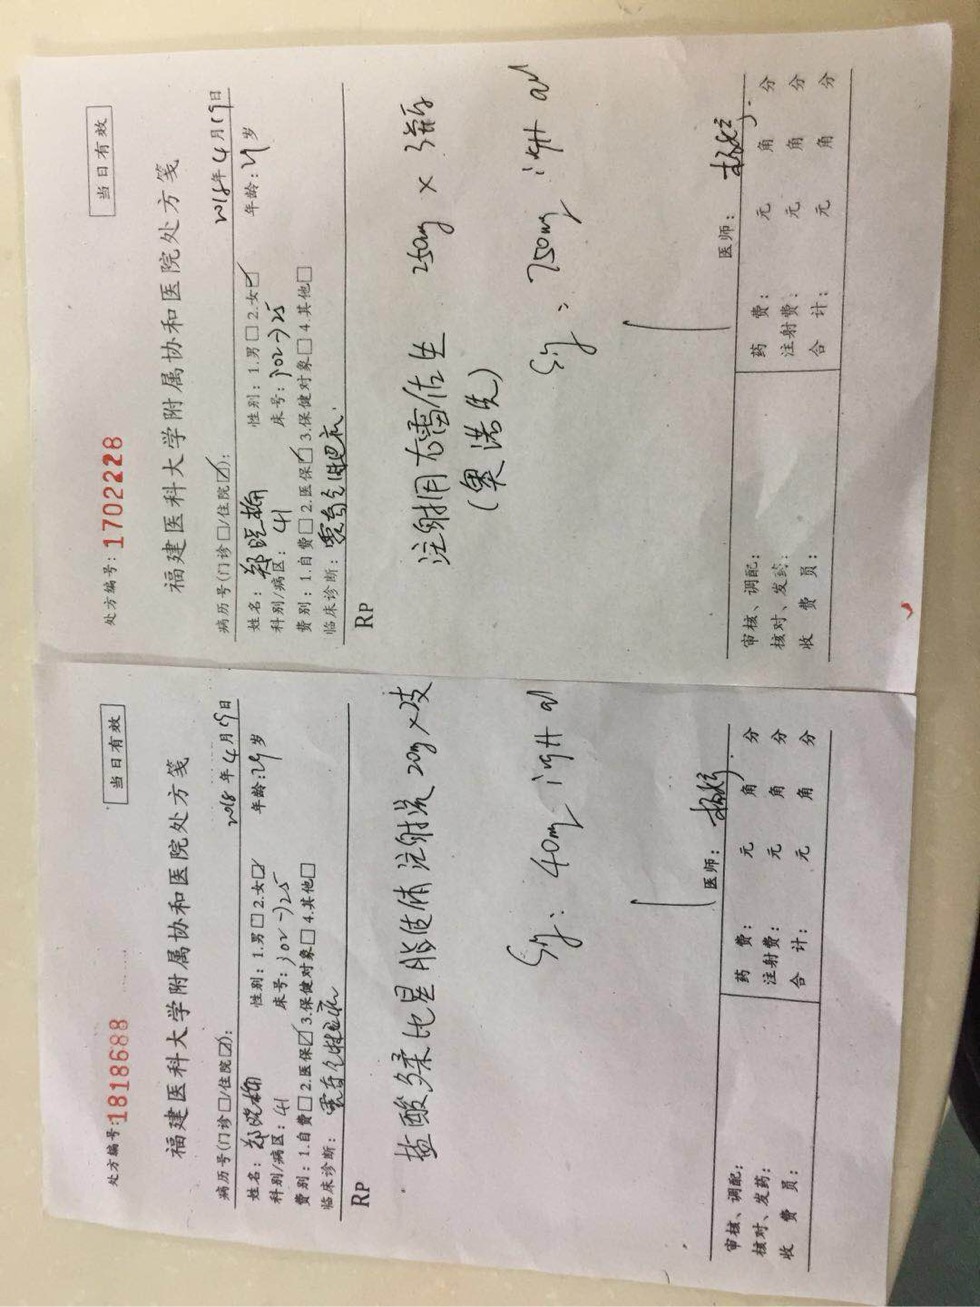 处方编号：1702228
当日有效
福建医科大学附属协和医院处方笺
病历号(门诊□/住院☑)：
2018年4月19日
姓名：郑晓榆
性别：1.男□ 2.女☑
年龄：29岁
科别/病区：41
床号：302-25
费别：1.自费□ 2.医保☑ 3.保健对象□ 4.其他□
临床诊断：
RP
注射用右雷佐生 250mg × 3瓶
(奥诺先)
Sig： 750mg ivgtt
医师：
审核、调配：
核对、发药：
收 费 员：
药 费： 元 角 分
注射费： 元 角 分
合 计： 元 角 分
处方编号：1818688
当日有效
福建医科大学附属协和医院处方笺
病历号(门诊□/住院☑)：
2018年4月19日
姓名：郑晓榆
性别：1.男□ 2.女☑
年龄：29岁
科别/病区：41
床号：302-25
费别：1.自费□ 2.医保☑ 3.保健对象□ 4.其他□
临床诊断：
RP
盐酸多柔比星脂质体注射液 20mg ×2支
Sig： 40mg ivgtt
医师：
审核、调配：
核对、发药：
收 费 员：
药 费： 元 角 分
注射费： 元 角 分
合 计： 元 角 分